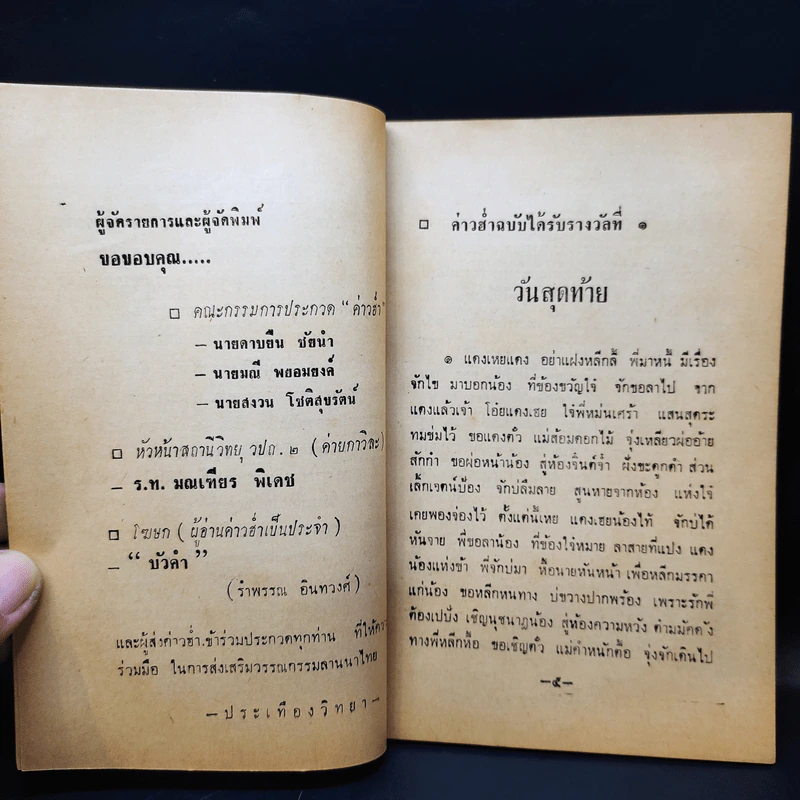 ผู้จัดรายการและผู้จัดพิมพ์
ขอขอบคุณ.....
□ คณะกรรมการประกวด "ค่าวฮ่ำ"
— นายดาบยืน ชัยนำ
— นายมณี พยอมยงค์
— นายสงวน โชติสุขรัตน์
□ หัวหน้าสถานีวิทยุ วปถ. ๒ (ค่ายกาวิละ)
— ร.ท. มณเฑียร พิเดช
□ โฆษก (ผู้อ่านค่าวฮ่ำเป็นประจำ)
— "บัวคำ"
(รำพรรณ อินทวงศ์)
และผู้ส่งค่าวฮ่ำเข้าร่วมประกวดทุกท่าน ที่ให้
ร่วมมือ ในการส่งเสริมวรรณกรรมลานนาไทย
—ประเทืองวิทยา—
□ ค่าวฮ่ำฉบับได้รับรางวัลที่ ๑
วันสุดท้าย
๑ แดงเหยแดง อย่าแฝงหลีกลี้ พี่มาหนี้ มีเรื่อง
จักไข มาบอกน้อง ที่ข้องขวัญใจ๋ จักขอลาไป จาก
แดงแล้วเจ้า โอ๋ยแดงเฮย ใจ๋พี่หม่นเศร้า แสนสุดระ
ทมข่มไว้ ขอแดงตั๋ว แม่ส้อมดอกไม้ จุ่งเหลียวผ่ออ้าย
สักกำ ขอผ่อหน้าน้อง สู่ห้องจิ๋นต์จ๋ำ ฝั่งชะตูกตำ ส่วน
เล็กเจตน์ป้อง จักบ่ลืมลาย สูนหายจากห้อง แห่งใจ๋
เคยพองจ่องไว้ ตั้งแต่นี้เหย แดงเฮยน้องไท้ จักบ่ได้
หันจาย พี่ขอลาน้อง ที่ข้องใจ๋หมาย ลาสายที่แปง แดง
น้องแห่งข้า พี่จักบ่มา หื้อนายหันหน้า เพื่อหลีกมรรคา
แก่น้อง ขอหลีกหนทาง บ่ขวางปากพร้อง เพราะรักพี่
ต้องเปปั๋ง เชิญนุชนาฏน้อง สู่ห้องความหวัง ตามมัดตั๋ง
ทางพี่หลีกหื้อ ขอเชิญตั๋ว แม่คำหนักตื้อ จุ่งจักเดินไป
—๕—